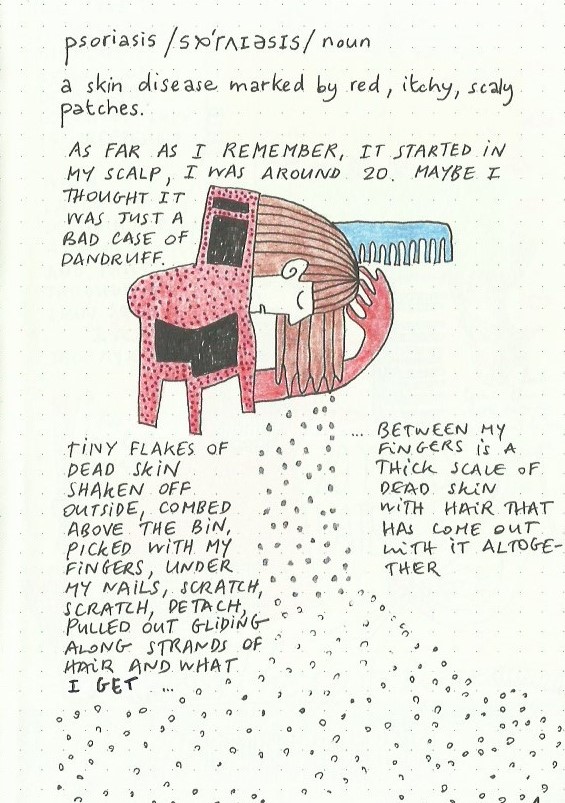 psoriasis /sɒˈrʌɪəsɪs/ noun
a skin disease marked by red, itchy, scaly
patches.
AS FAR AS I REMEMBER, IT STARTED IN
MY SCALP, I WAS AROUND 20. MAYBE I
THOUGHT IT
WAS JUST A
BAD CASE OF
DANDRUFF.
TINY FLAKES OF
DEAD SKIN
SHAKEN OFF
OUTSIDE, COMBED
ABOVE THE BIN,
PICKED WITH MY
FINGERS, UNDER
MY NAILS, SCRATCH,
SCRATCH, DETACH,
PULLED OUT GLIDING
ALONG STRANDS OF
HAIR AND WHAT
I GET ...
... BETWEEN MY
FINGERS IS A
THICK SCALE OF
DEAD SKIN
WITH HAIR THAT
HAS COME OUT
WITH IT ALTOGE-
THER